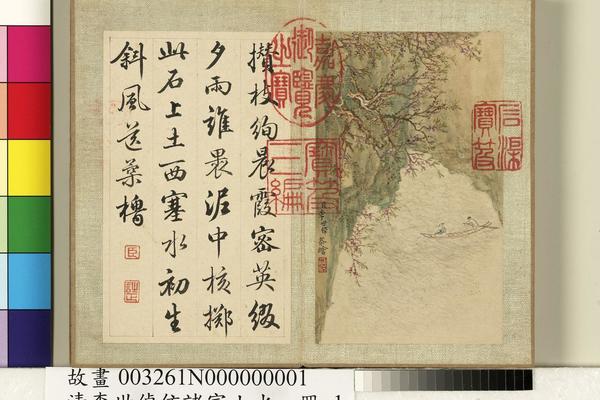 攢枝絢晨霞密英綴
夕雨誰裹泥中核擲
此石上土西塞水初生
斜風送葉櫓
臣
嘉慶御覽之寶
寶笈三編
石渠寶笈
臣李世倬恭繪
故畫 003261N000000001